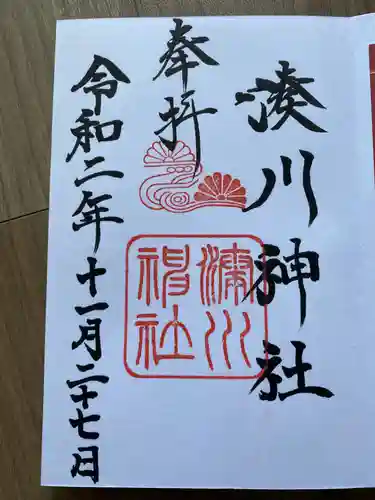 湊川神社
奉拝
湊川
神社
令和二年十一月二十七日